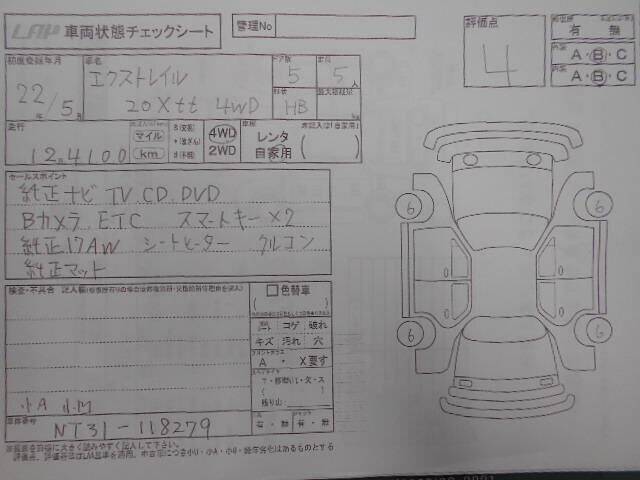 LAP 車両状態チェックシート
管理No
評価点
4
有 無
A・B・C
A・B・C
初度登録年月
22年/5月
車名
エクストレイル
20Xtt 4WD
ドア数
5
定員
5人
形状
HB
最大積載量
走行
12,4100
マイル
km
4WD
2WD
車歴
レンタ
自家用
未記入は「自家用」
セールスポイント
純正ナビ TV.CD.DVD
Bカメラ. ETC スマートキー×2
純正17AW シートヒーター クルコン
純正マット
検査・不具合 記入欄
小A 小M
色替車
コゲ 破れ
キズ 汚れ 穴
フロントガラス
A・ X要す
残り山
有・無 有・無
車台番号
NT31-118279
6
6
6
6